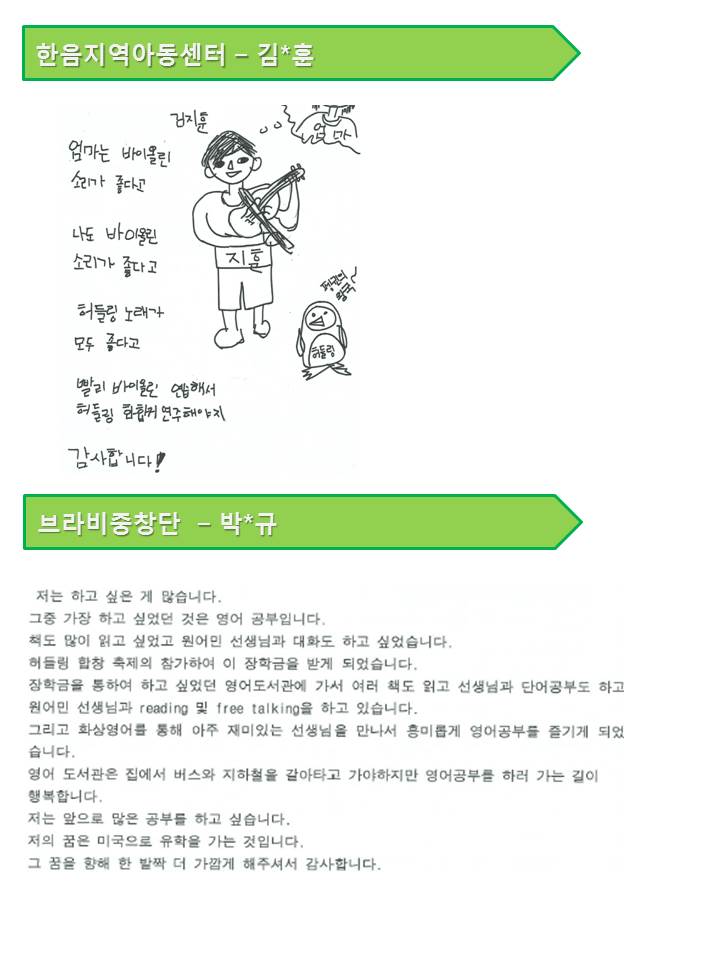 한음지역아동센터 – 김*훈
김지훈
엄마
엄마는 바이올린
소리가 좋다고
나도 바이올린
소리가 좋다고
지훈
허들링 노래가
모두 좋다고
펭귄의
허들링
빨리 바이올린 연습해서
허들링 화합커 연주해야지
감사합니다!
브라비중창단 – 박*규
저는 하고 싶은 게 많습니다.
그중 가장 하고 싶었던 것은 영어 공부입니다.
책도 많이 읽고 싶었고 원어민 선생님과 대화도 하고 싶었습니다.
허들링 합창 축제의 참가하여 이 장학금을 받게 되었습니다.
장학금을 통하여 하고 싶었던 영어도서관에 가서 여러 책도 읽고 선생님과 단어공부도 하고
원어민 선생님과 reading 및 free talking을 하고 있습니다.
그리고 화상영어를 통해 아주 재미있는 선생님을 만나서 흥미롭게 영어공부를 즐기게 되었
습니다.
영어 도서관은 집에서 버스와 지하철을 갈아타고 가야하지만 영어공부를 하러 가는 길이
행복합니다.
저는 앞으로 많은 공부를 하고 싶습니다.
저의 꿈은 미국으로 유학을 가는 것입니다.
그 꿈을 향해 한 발짝 더 가깝게 해주셔서 감사합니다.